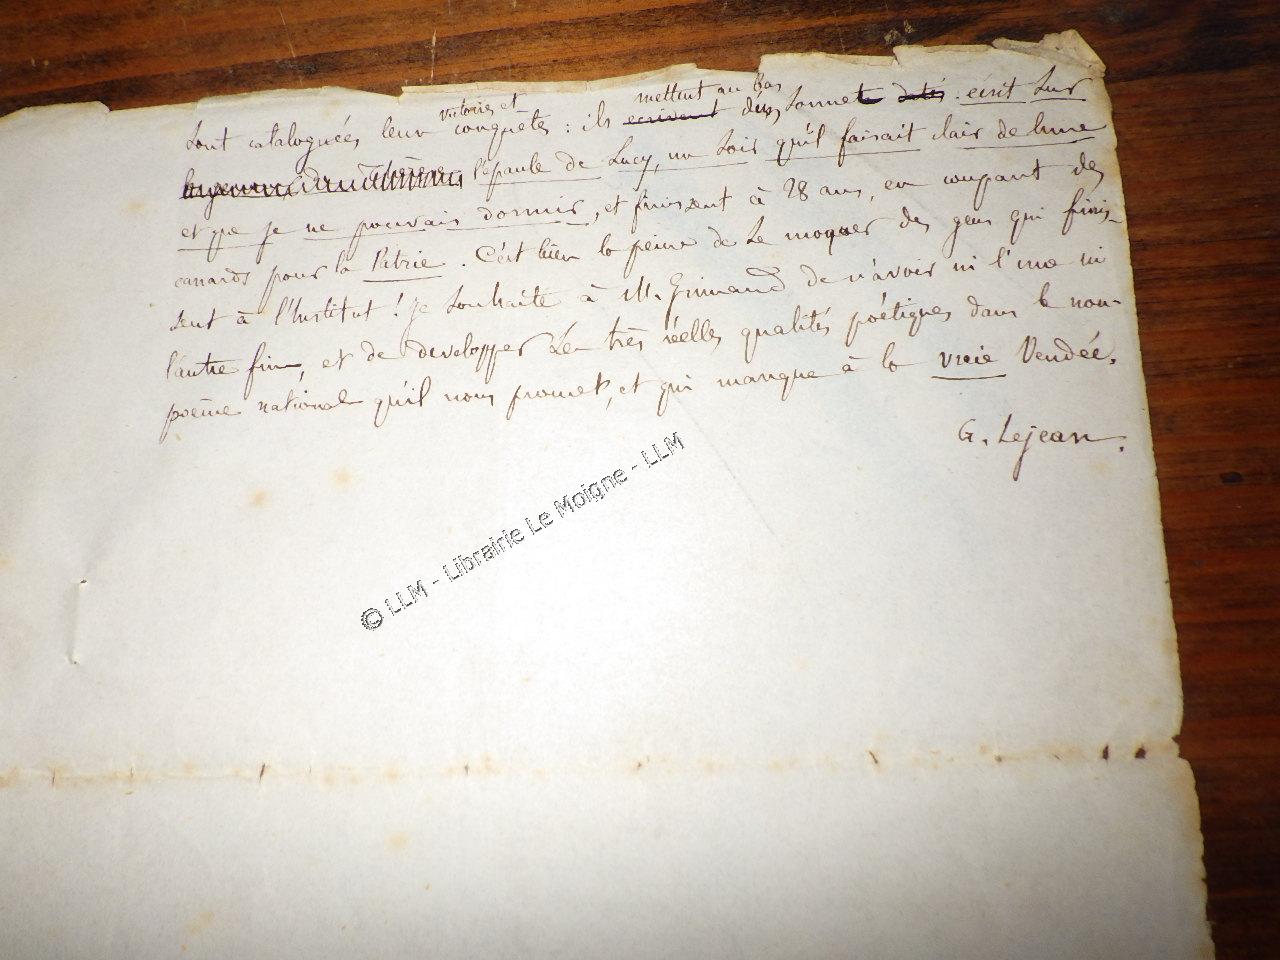 victoires et
mettent au bas
sont cataloguées leur conquêtes : ils ecrivent d'un sonnet datés : écrit sur
l'épaule de Lucy, un soir qu'il faisait clair de lune
et que je ne pouvais dormir, et finissent à 28 ans, en coupant des
canards pour la Patrie. C'est bien la peine de se moquer des gens qui finis-
sent à l'Institut ! Je souhaite à M. Grimaud de n'avoir ni l'une ni
l'autre fin, et de developper ses très réelles qualités poétiques dans le
poème national qu'il nous promet, et qui manque à la vraie Vendée.
G. Lejean.
© LLM - Librairie Le Moigne - LLM